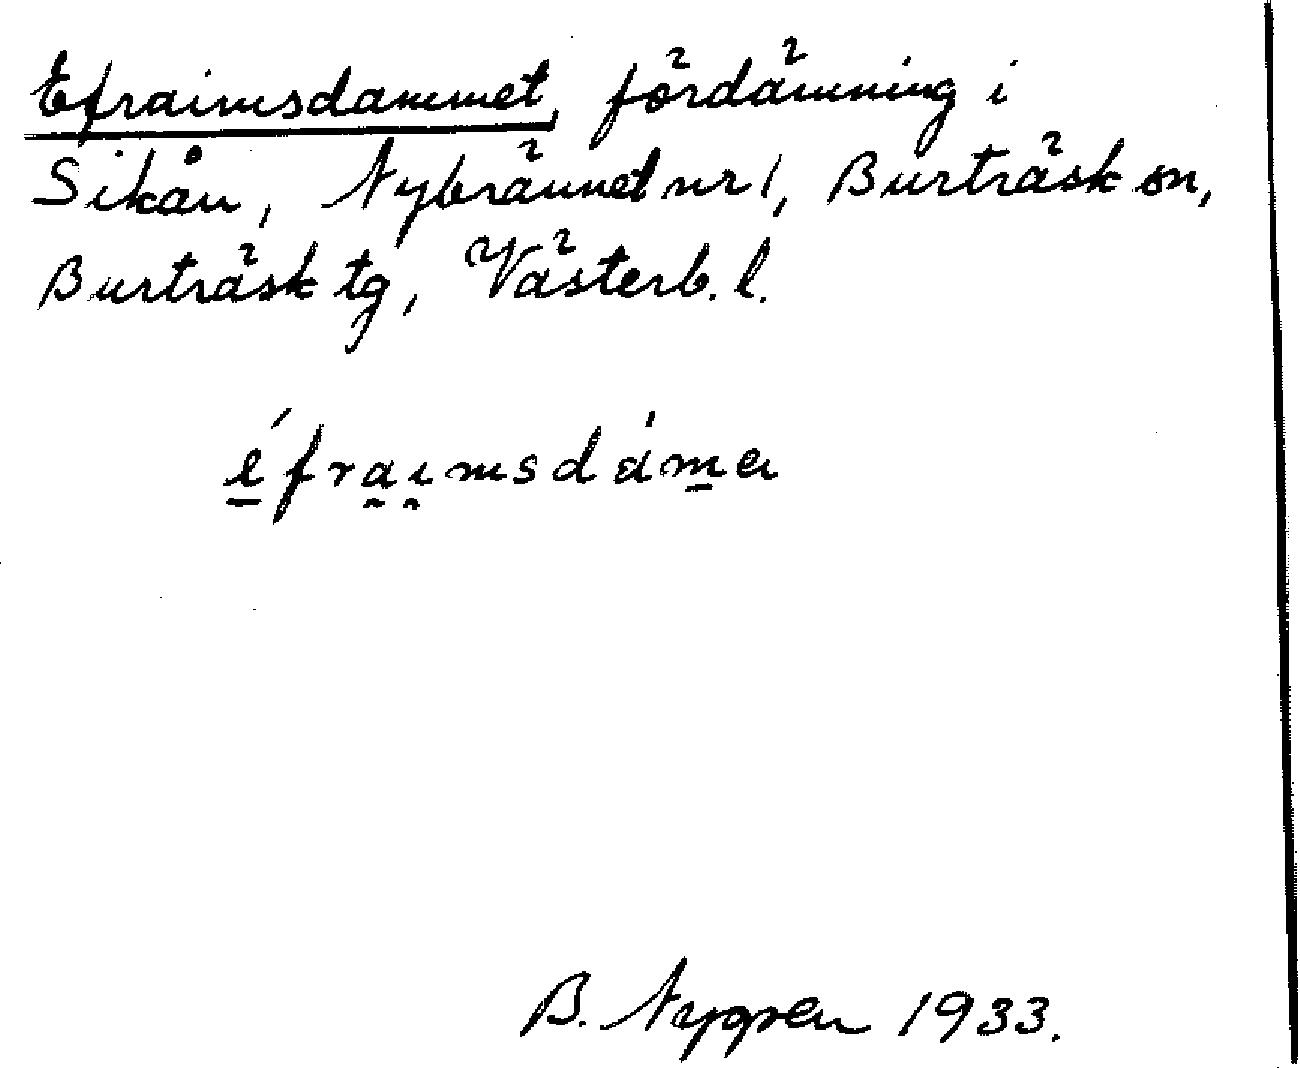 Efraimsdammet, fördämning i
Sikån, Nybrännet nr 1, Burträsk sn,
Burträsk tg, Västerb. l.
éfraimsdáma
B. Nygren 1933.